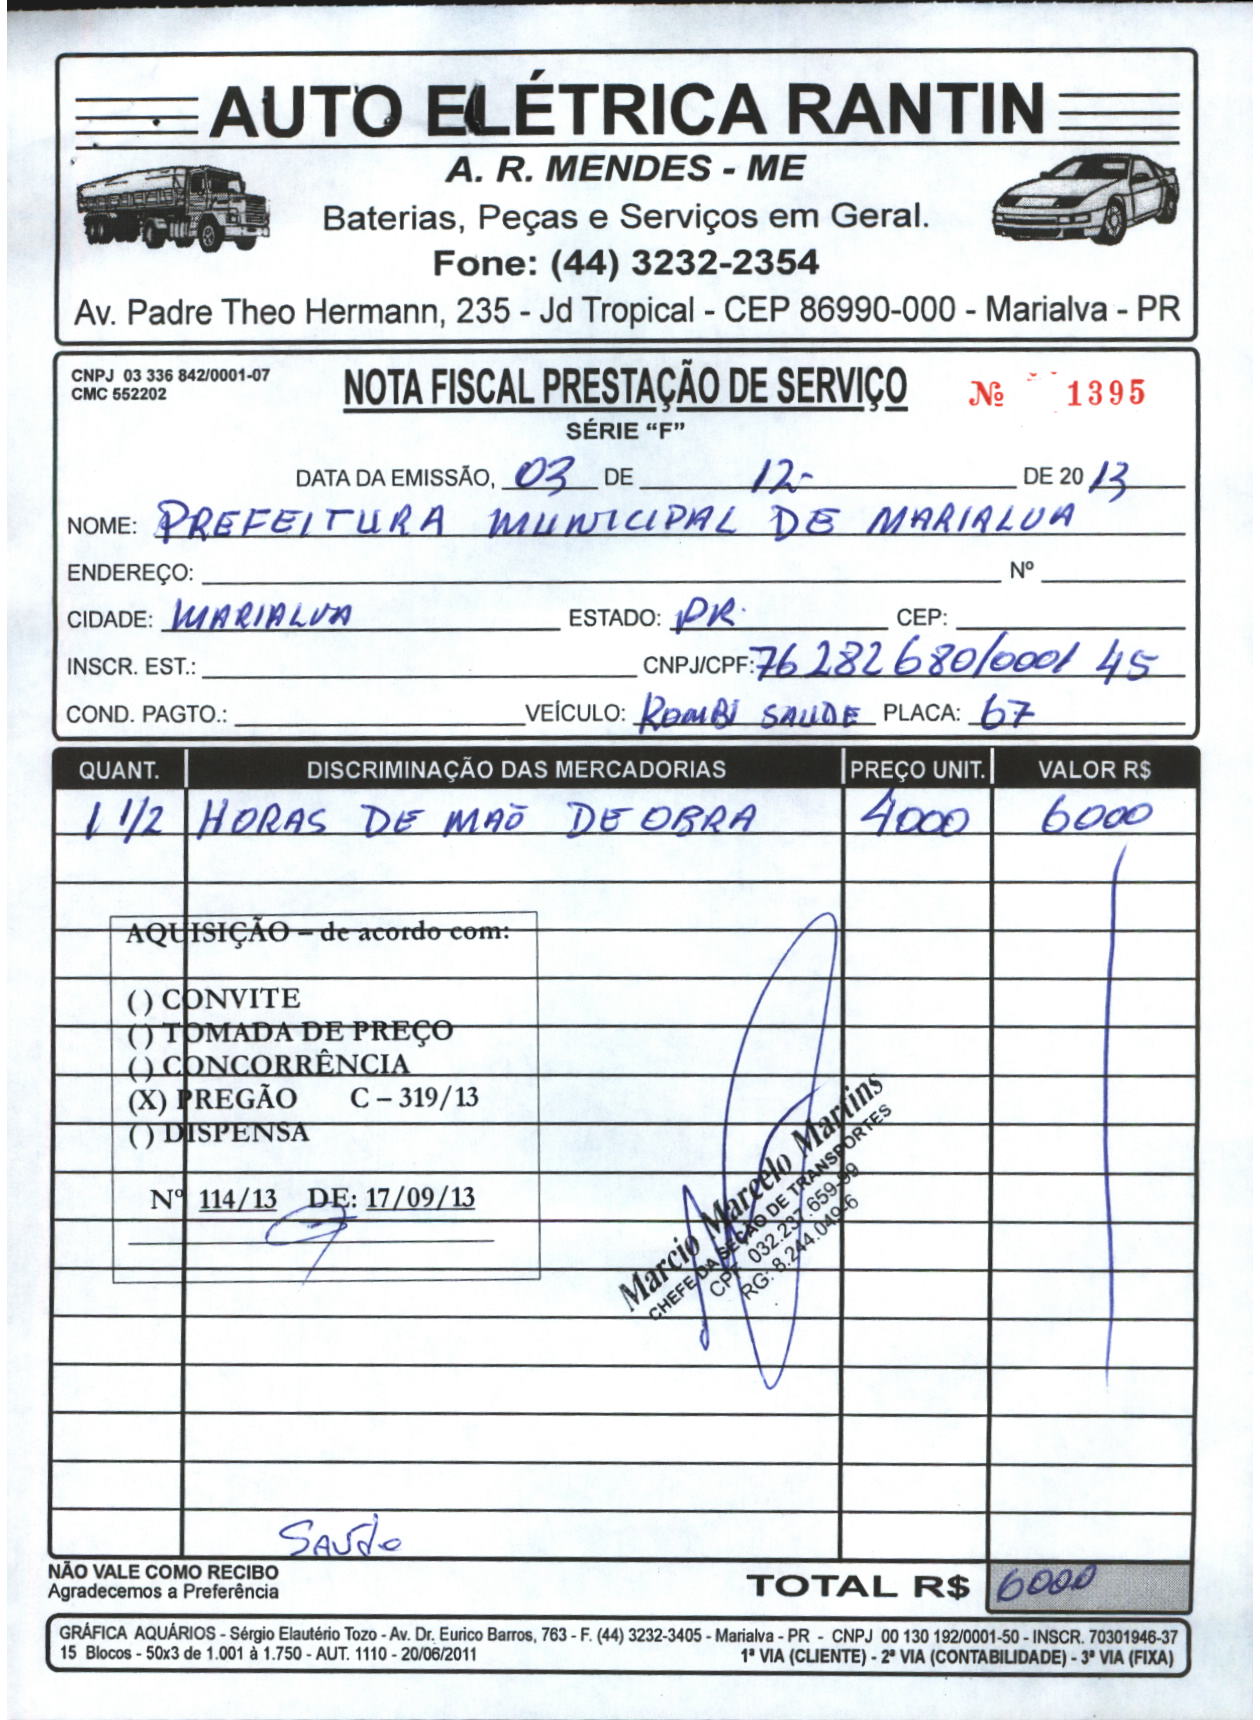 AUTO ELÉTRICA RANTIN
A. R. MENDES - ME
Baterias, Peças e Serviços em Geral.
Fone: (44) 3232-2354
Av. Padre Theo Hermann, 235 - Jd Tropical - CEP 86990-000 - Marialva - PR
CNPJ 03 336 842/0001-07
CMC 552202
NOTA FISCAL PRESTAÇÃO DE SERVIÇO
Nº 1395
SÉRIE “F”
DATA DA EMISSÃO, 03 DE 12- DE 2013
NOME: PREFEITURA MUNICIPAL DE MARIALVA
ENDEREÇO: Nº
CIDADE: MARIALVA ESTADO: PR. CEP:
INSCR. EST.: CNPJ/CPF: 76 282 680/0001 45
COND. PAGTO.: VEÍCULO: KOMBI SAUDE PLACA: 67
QUANT. DISCRIMINAÇÃO DAS MERCADORIAS PREÇO UNIT. VALOR R$
1 1/2 HORAS DE MAÕ DE OBRA 4000 6000
AQUISIÇÃO – de acordo com:
( ) CONVITE
( ) TOMADA DE PREÇO
( ) CONCORRÊNCIA
(X) PREGÃO C – 319/13
( ) DISPENSA
Nº 114/13 DE: 17/09/13
Marcio Marcelo Martins
CHEFE DA SEÇÃO DE TRANSPORTES
CPF: 032.237.659-99
RG: 8.244.049-6
NÃO VALE COMO RECIBO
Agradecemos a Preferência
TOTAL R$ 6000
GRÁFICA AQUÁRIOS - Sérgio Elautério Tozo - Av. Dr. Eurico Barros, 763 - F. (44) 3232-3405 - Marialva - PR - CNPJ 00 130 192/0001-50 - INSCR. 70301946-37
15 Blocos - 50x3 de 1.001 à 1.750 - AUT. 1110 - 20/06/2011 1ª VIA (CLIENTE) - 2ª VIA (CONTABILIDADE) - 3ª VIA (FIXA)